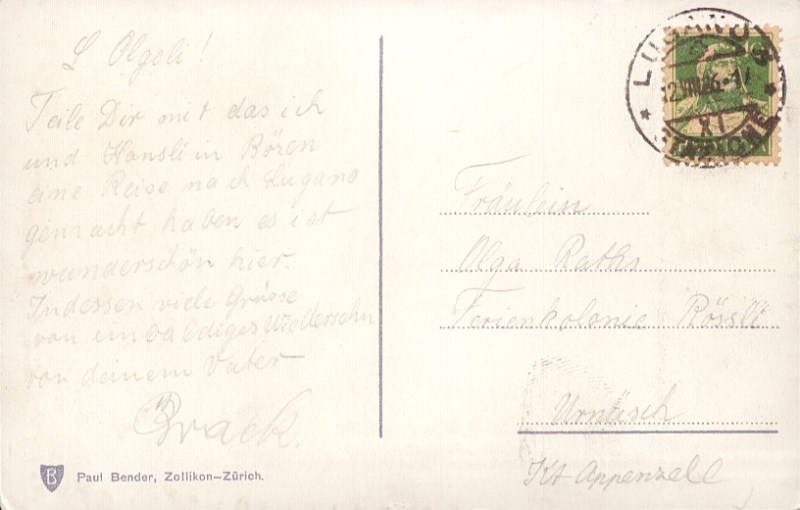 L Olgeli!
Teile Dir mit das ich
und Hansli in Bören
eine Reise nach Lugano
gemacht haben es ist
wunderschön hier.
Indessen viele Grüsse
von ein baldiges Wiedersehn
von deinem Vater
Brack.
B Paul Bender, Zollikon—Zürich.
LUGANO
12.VIII.26.-17
XI
Fräulein
Olga Raths
Ferienkolonie Rössli
Urnäsch
Kt Appenzell